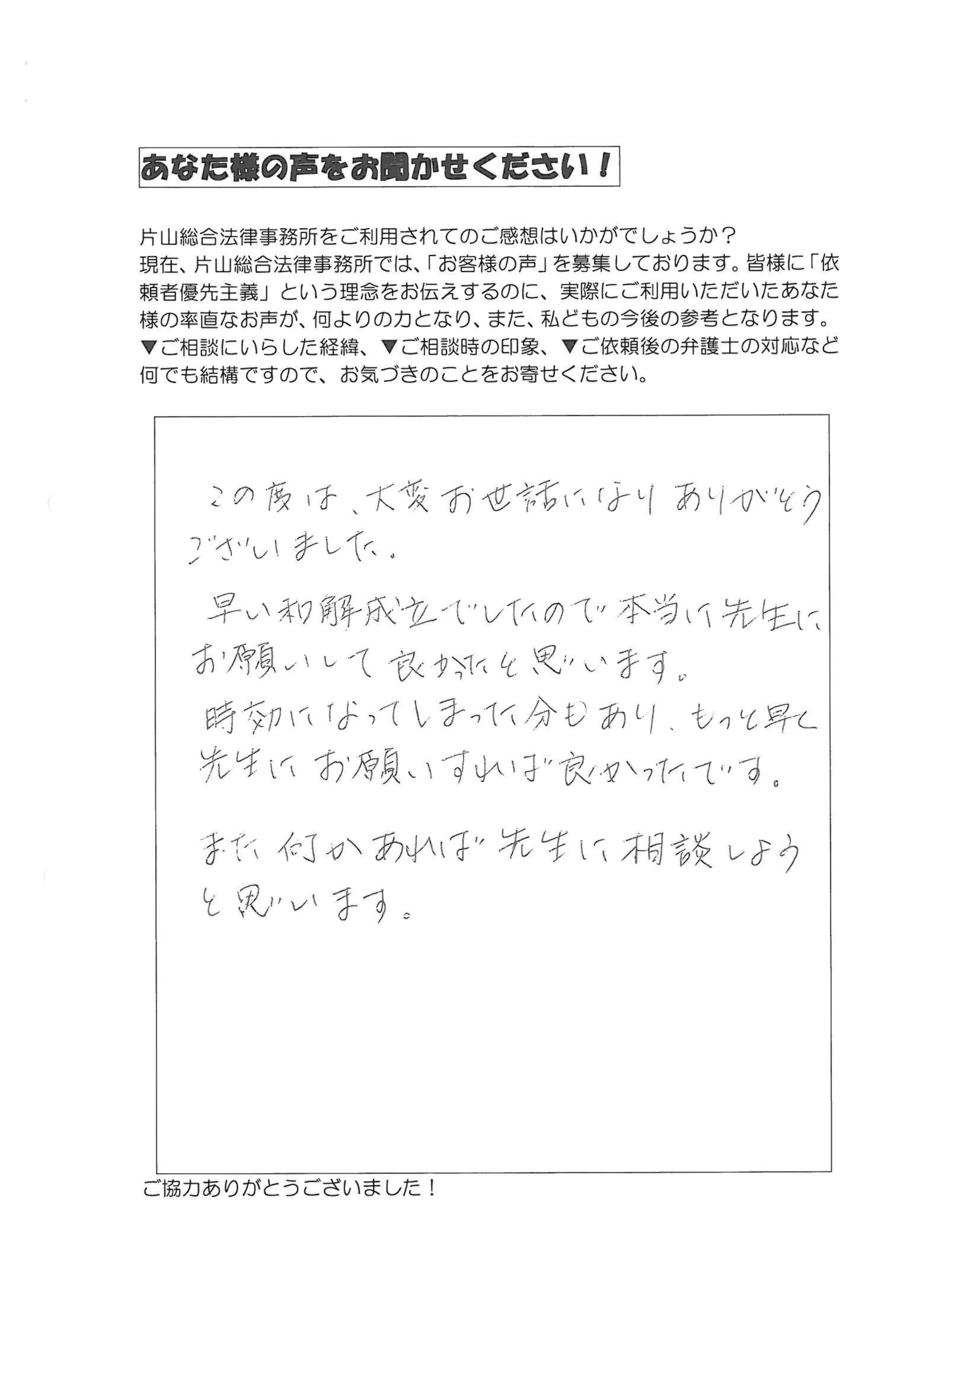 あなた様の声をお聞かせください！
片山総合法律事務所をご利用されてのご感想はいかがでしょうか？
現在、片山総合法律事務所では、「お客様の声」を募集しております。皆様に「依
頼者優先主義」という理念をお伝えするのに、実際にご利用いただいたあなた
様の率直なお声が、何よりの力となり、また、私どもの今後の参考となります。
▼ご相談にいらした経緯、▼ご相談時の印象、▼ご依頼後の弁護士の対応など
何でも結構ですので、お気づきのことをお寄せください。
この度は、大変お世話になりありがとう
ございました。
早い和解成立でしたので本当に先生に
お願いして良かったと思います。
時効になってしまった分もあり、もっと早く
先生にお願いすれば良かったです。
また何かあれば先生に相談しよう
と思います。
ご協力ありがとうございました！